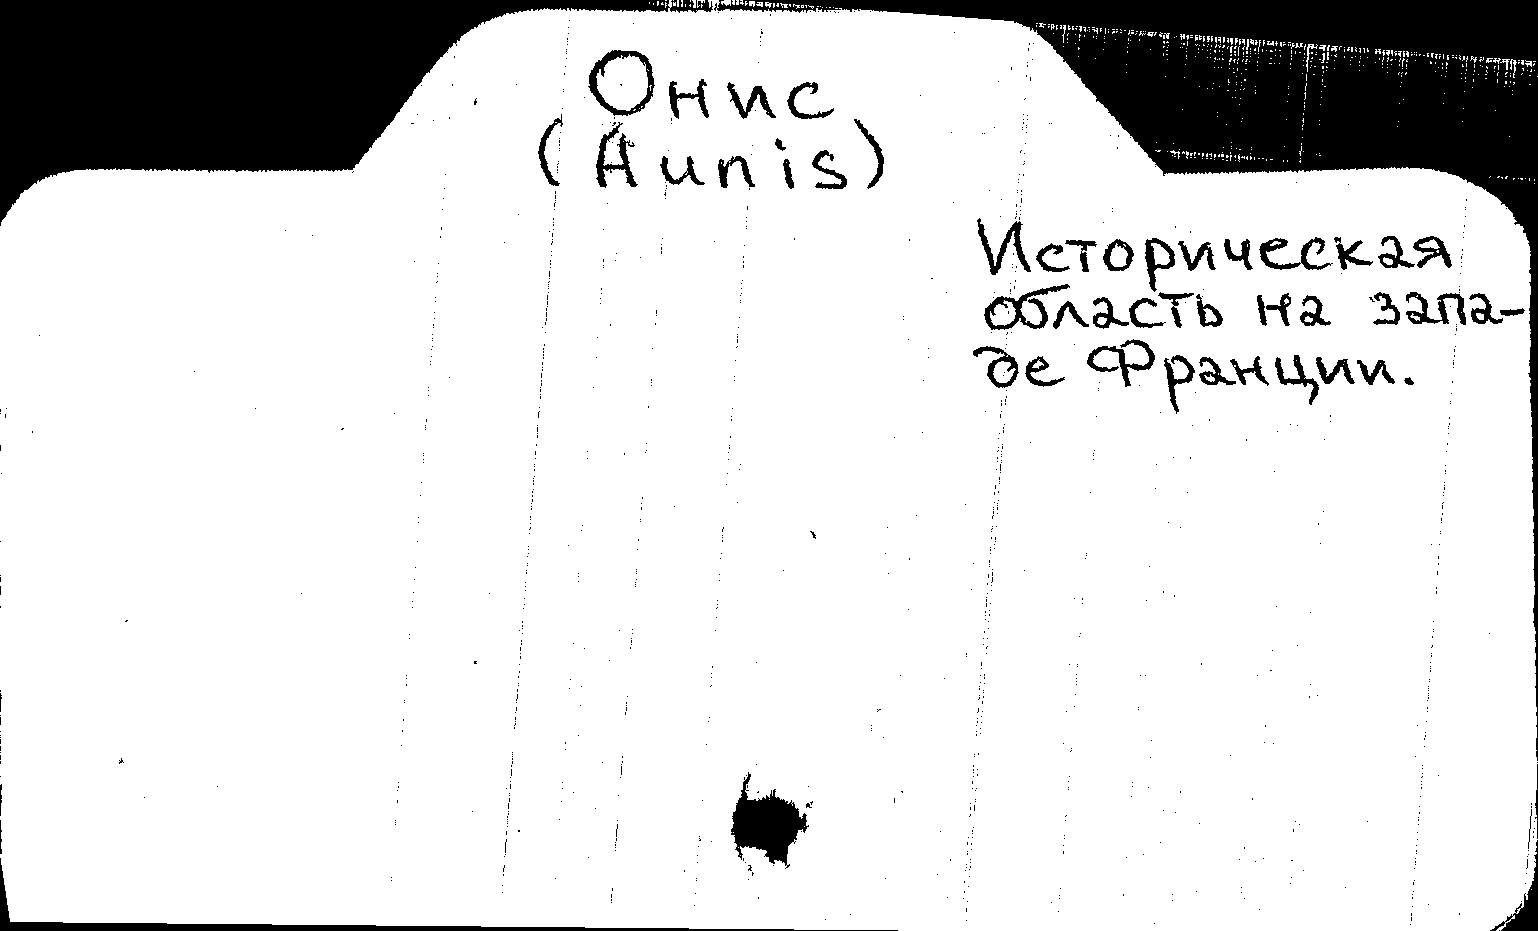 Онис
(Aunis)
Историческая
область на запа-
де Франции.